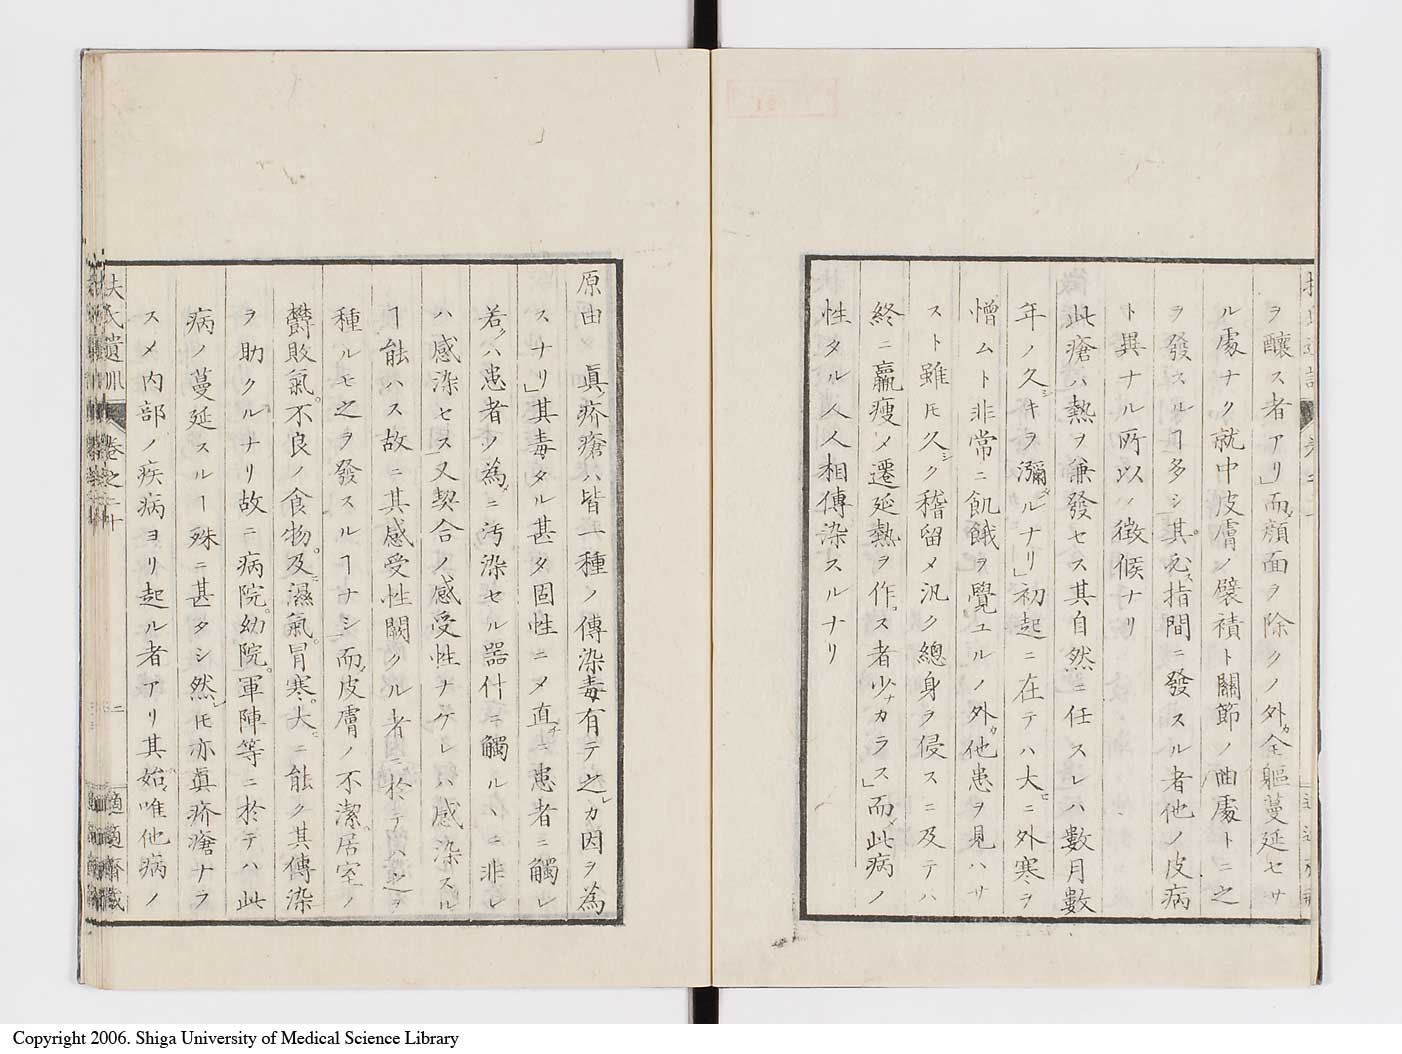 ヲ釀ス者アリ」而ノ顔面ヲ除クノ外カ全軀蔓延セサ
ル處ナク就中皮膚ノ襞積ト關節ノ曲處トニ之
ヲ發スルヿ多シ其他指間ニ發スル者他ノ皮病
ト異ナル所以ノ徴候ナリ
此瘡ハ熱ヲ兼發セス其自然ニ任スレハ數月數
年ノ久シキヲ瀰ルナリ」初起ニ在テハ大ニ外寒ヲ
憎ムト非常ニ飢餓ヲ覺ユルノ外カ他患ヲ見ハサ
スト雖モ久シク稽留メ汎ク總身ヲ侵スニ及テハ
終ニ羸瘦メ遷延熱ヲ作ス者少ナカラス」而此病ノ
性タル人人相傳染スルナリ
原由 眞疥瘡ハ皆一種ノ傳染毒有テ之レカ因ヲ為
スナリ」其毒タル甚タ固性ニメ直チニ患者ニ觸レ
若クハ患者ノ為メニ汚染セル器什ニ觸ルヽニ非レ
ハ感染セス又契合ノ感受性ナケレハ感染スル
ヿ能ハス故ニ其感受性闕クル者ニ於テハ之ヲ
種ルモ之ヲ發スルヿナシ」而皮膚ノ不潔居室ノ
欝敗氣不良ノ食物及ニ濕氣冒寒大ニ能ク其傳染
ヲ助クルナリ故ニ病院幼院軍陣等ニ於テハ此
病ノ蔓延スルヿ殊ニ甚タシ然レモ亦眞疥瘡ナラ
スメ内部ノ疾病ヨリ起ル者アリ其始唯他病ノ
扶氏遺訓 卷之二十
二
適適齋藏
Copyright 2006. Shiga University of Medical Science Library